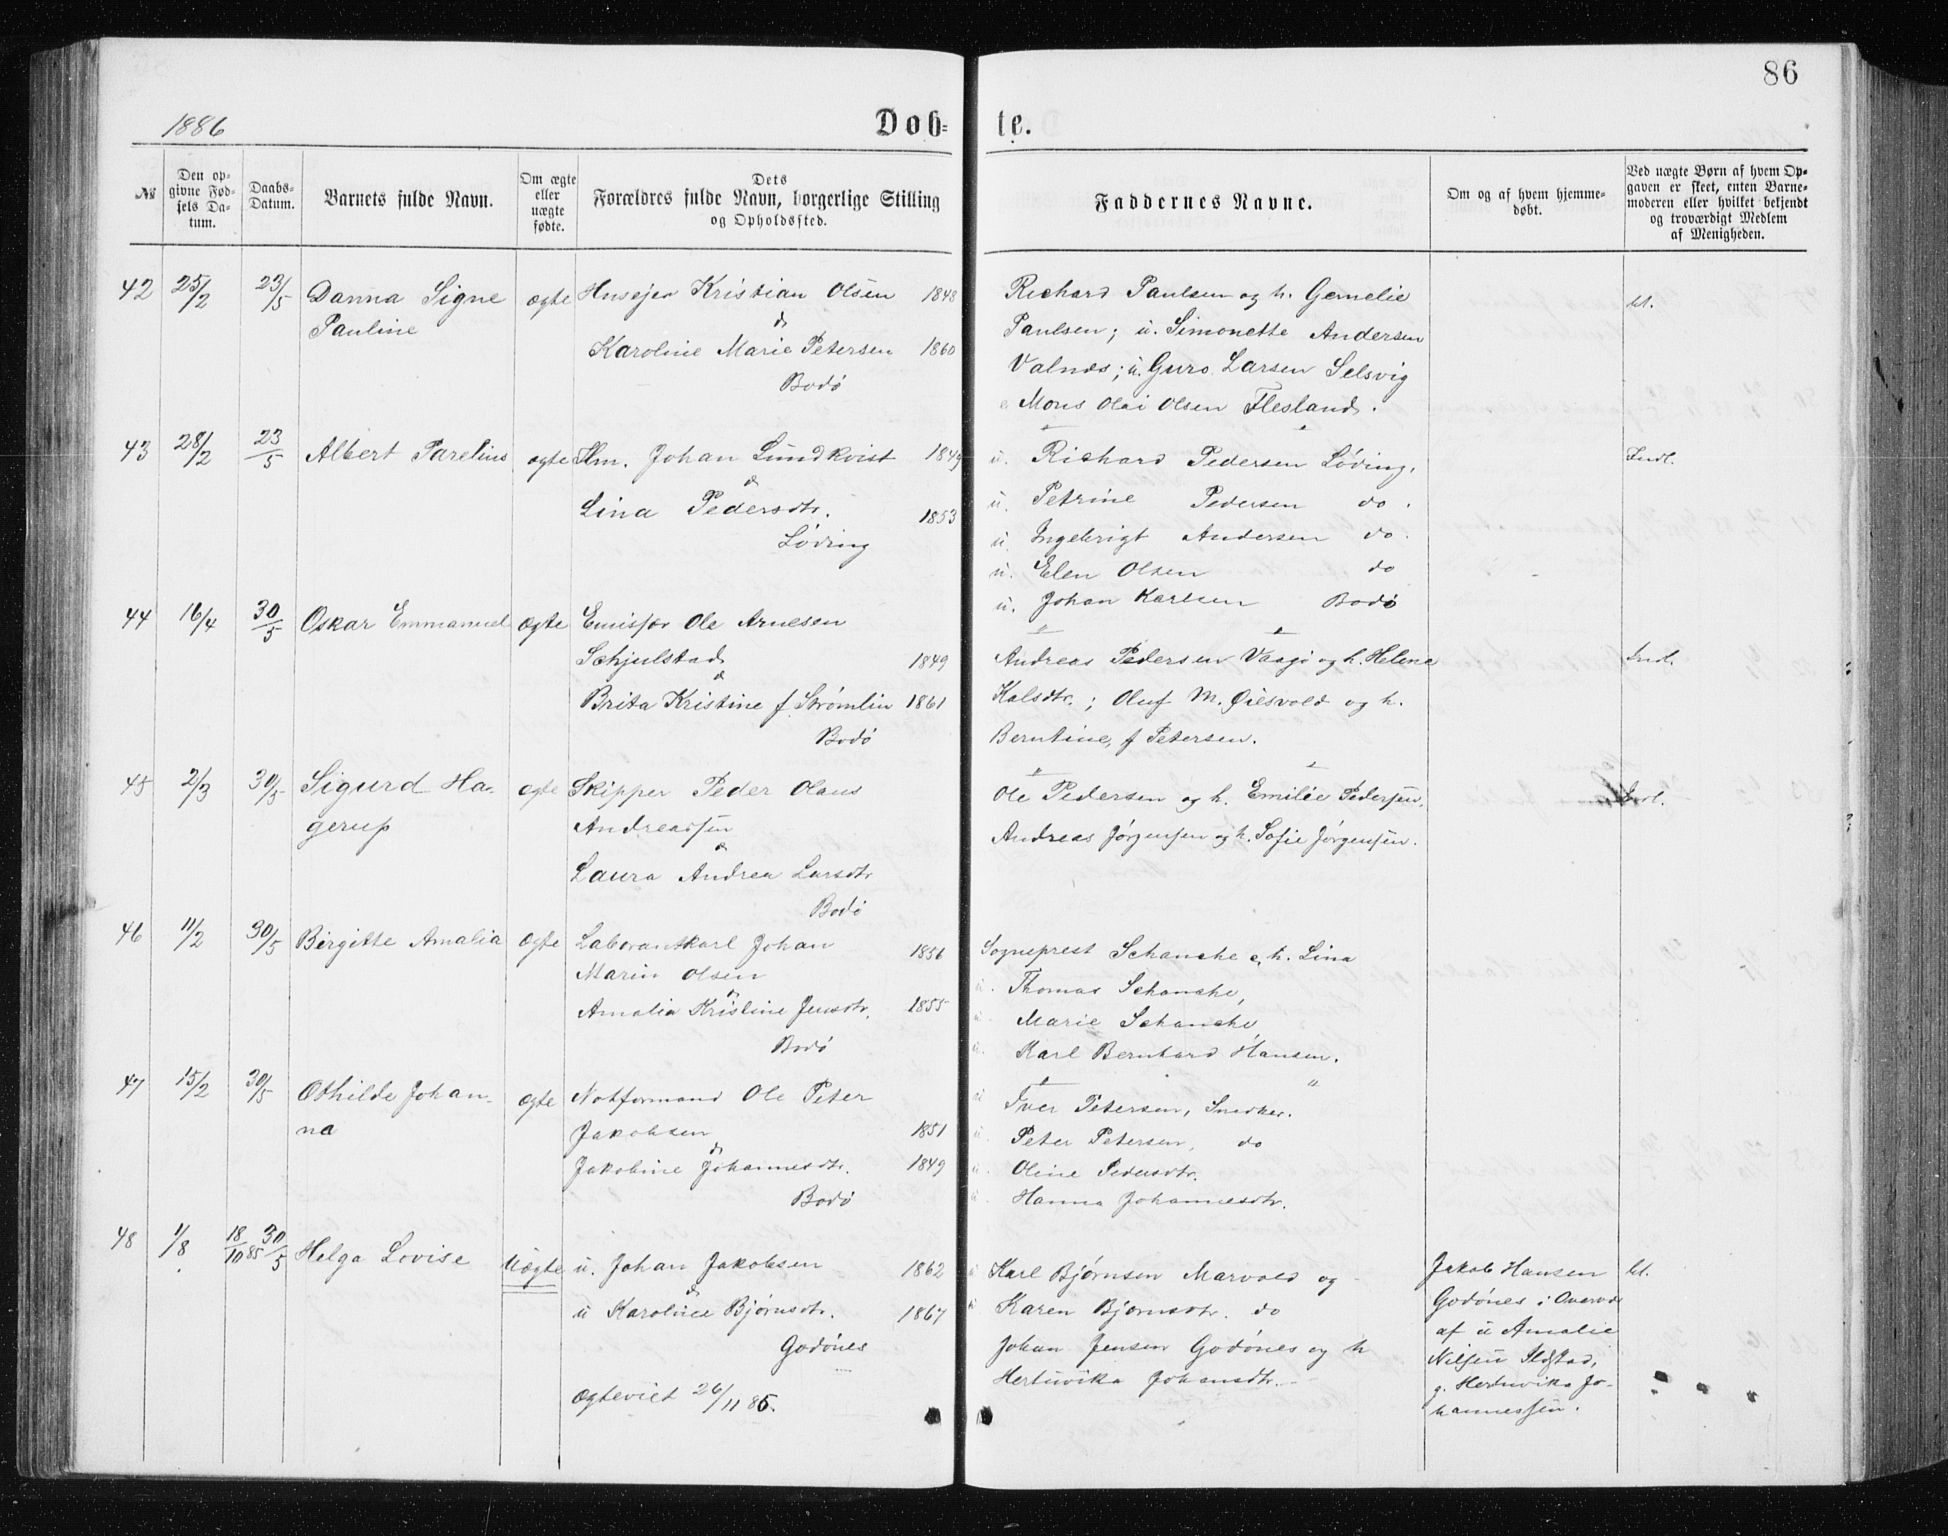 86
1886
Døb-
te.
№
Den op-
givne Fød-
sels Da-
tum.
Daabs-
Datum.
Barnets fulde Navn.
Om ægte
eller
uægte
fødte.
Dets
Forældres fulde Navn, borgerlige Stilling
og Opholdssted.
Faddernes Navne.
Om og af hvem hjemme-
døbt.
Ved uægte Børn af hvem Op-
gaven er skeet, enten Barne-
moderen eller hvilket bekjendt
og troværdigt Medlem
af Menigheden.
42 25/2 23/5 Danna Signe
Pauline
ægte
Husejer Kristian Olsen 1848
&
Karoline Marie Petersen 1860
Bodø
Richard Paulsen og h. Gemelie
Paulsen; u. Simonette Andersen
Valnæs; u. Guro Larsen Selsvig
Mons Olai Olsen Flesland.
43 28/2 23/5 Albert Parelius
ægte
Hm. Johan Lundkvist 1849
&
Lina Pedersdtr. 1853
Løding
u. Richard Pedersen Løding.
u. Petrine Pedersen do.
u. Ingebrigt Andersen do.
u. Elen Olsen do
u. Johan Karlsen Bodø
Indl.
44 16/4 30/5 Oskar Emmanuel
ægte
Emisjær Ole Arnesen
Schjulstad 1849
&
Brita Kristine f. Strømlin 1861
Bodø
Andreas Pedersen Vaagø og h. Helena
Kalsdtr.; Oluf M. Øiesvold og h.
Berntine, f Petersen.
Indl.
45 2/3 30/5 Sigurd Ha-
gerup
ægte
Skipper Peder Olaus
Andreassen
&
Laura Andrea Larsdtr
Bodø
Ole Pedersen og h. Emilie Pedersen,
Andreas Jørgensen og h. Sofie Jørgensen.
Indl.
46 11/2 30/5 Birgitte Amalia
ægte
Laborantkarl Johan 1856
Marin Olsen
&
Amalia Kristine Jensdtr. 1855
Bodø
Sogneprest Schanche & h. Lina
u. Thomas Schanche,
u. Marie Schanche,
u. Karl Bernhard Hansen.
47 15/2 30/5 Othilde Johan-
na
ægte
Notformand Ole Peter
Jakobsen 1851
&
Jakobine Johannesdtr. 1849
Bodø
u. Iver Petersen, Snedker.
u. Peter Petersen, do
u. Oline Pedersdtr.
u. Hanna Johannesdtr.
48 1/8 18/10 85 30/5 Helga Lovise
Uægte
u. Johan Jakobsen 1862
&
u Karoline Bjørnsdtr. 1867
Godønes
Ægteviet 26/11 85.
u Karl Bjørnsen Marvold og
u Karen Bjørnsdtr. do
Johan Jensen Godønes og h
Hertuvika Johansdtr.
Jakob Hansen
Godønes i Overvær
af u Amalie
Nilsen Ildstad,
g. Hertuvika Jo-
hannessen.